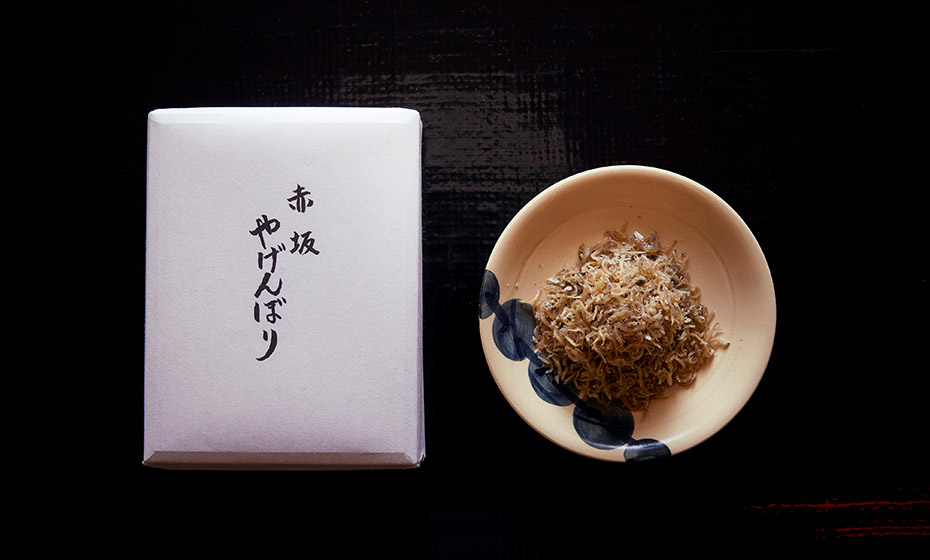 赤坂
やげんぼり